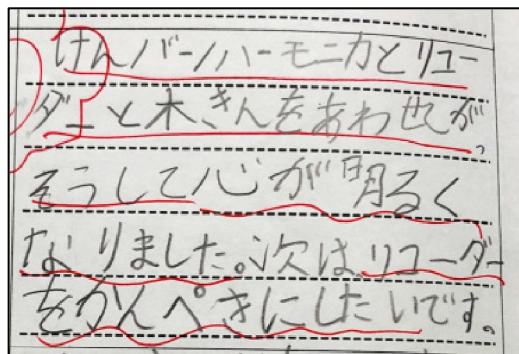 けんバーンハーモニカとリコー
ダーと木きんをあわせが、
そうして心が明るく
なりました。次はリコーダー
をかんぺきにしたいです。